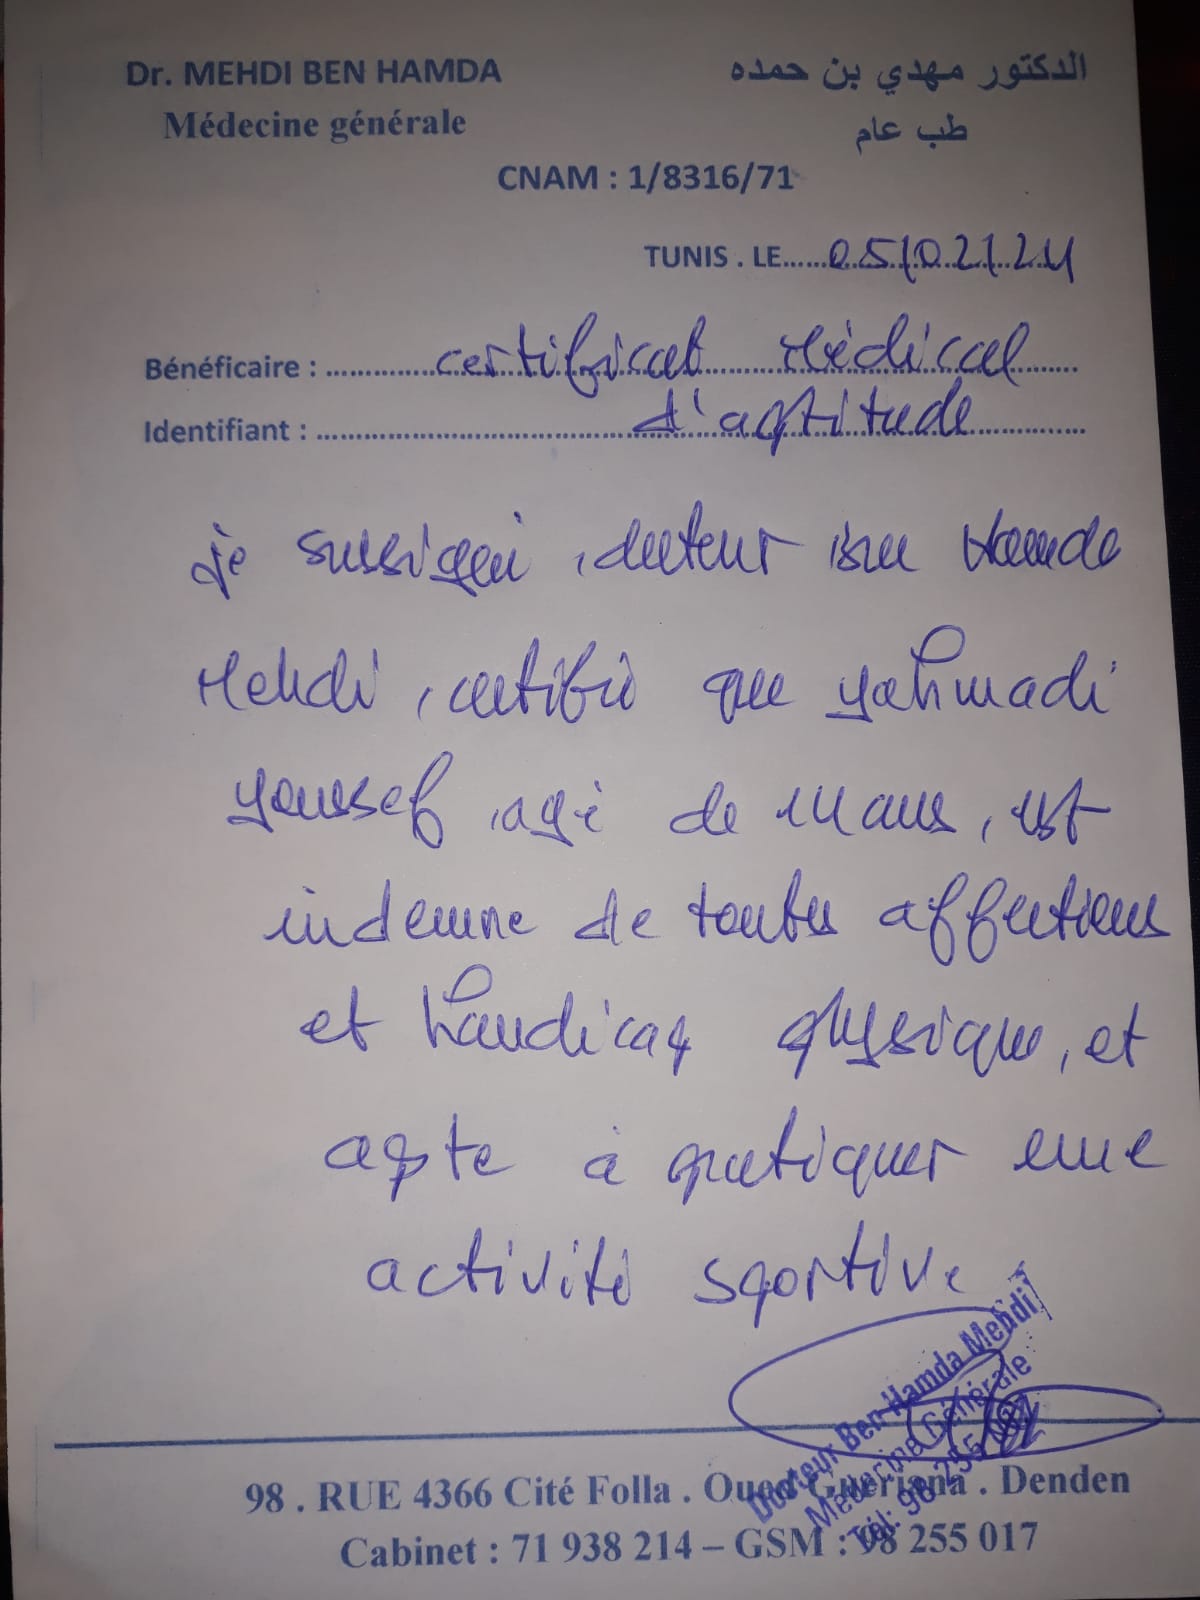 Dr. MEHDI BEN HAMDA
Médecine générale
الدكتور مهدي بن حمده
طب عام
CNAM : 1/8316/71
TUNIS . LE......05/02/24
Bénéficaire : certificat Médical
Identifiant : d'aptitude
je sussigné, docteur Ben Hamda
Mehdi, certifie que yahmadi
youssef, agé de 14 ans, est
indemne de toutes affections
et handicap physique, et
apte à pratiquer une
activité sportive.
Docteur Ben Hamda Mehdi
Médecine Générale
Tél: 98 255 017
98 . RUE 4366 Cité Folla . Oued Gueriana . Denden
Cabinet : 71 938 214 – GSM : 98 255 017